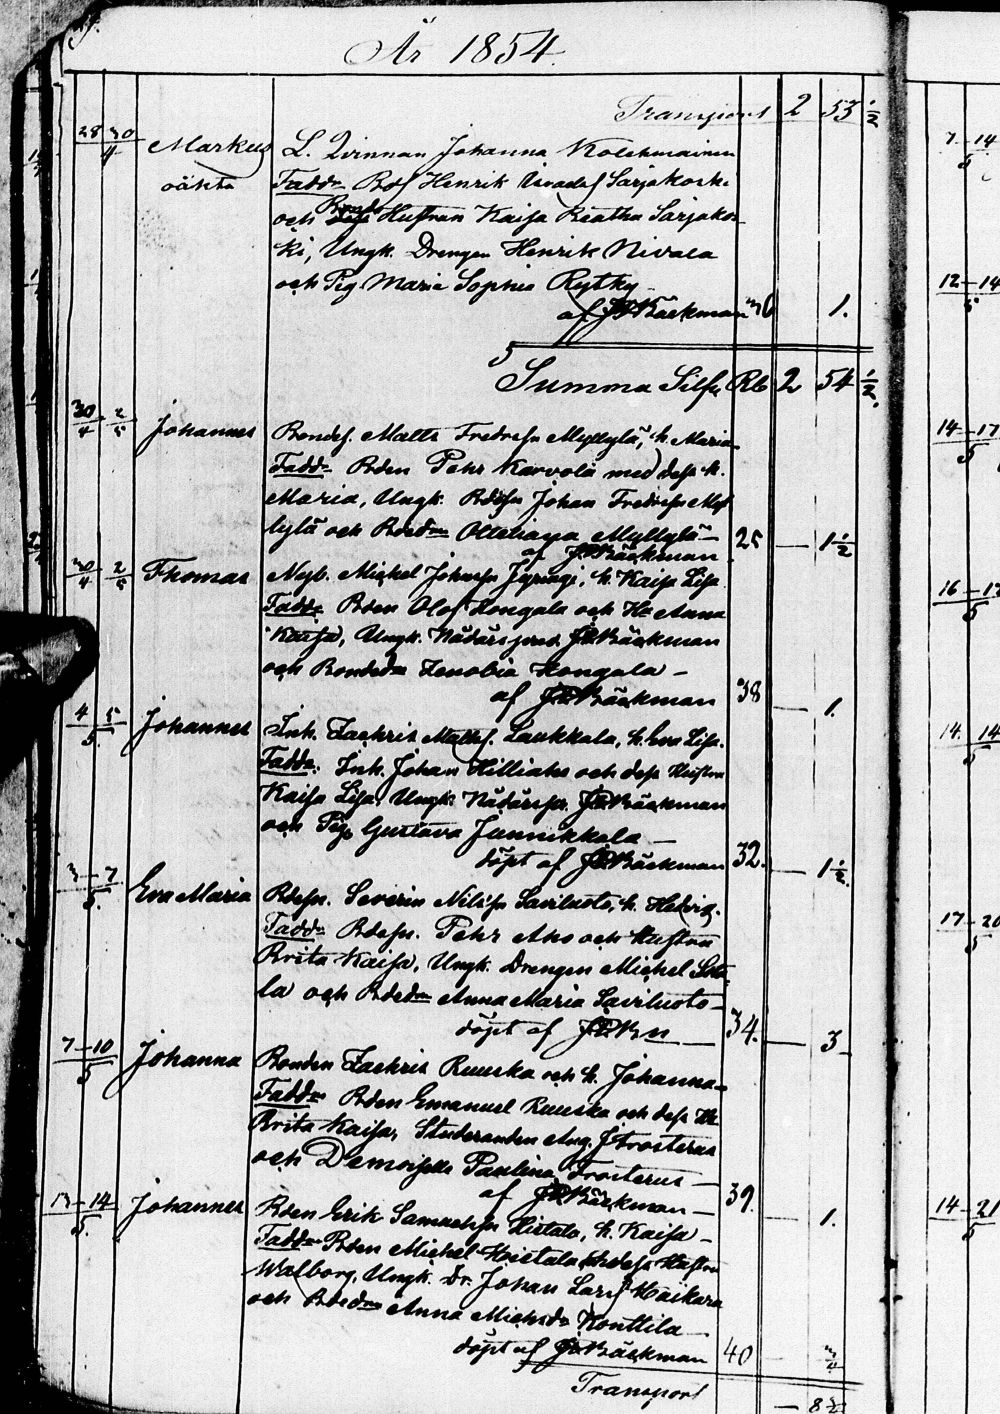 År 1854.
Transport 2 53 1/2
28 30/4 Markus L. Qvinnan Johanna Kolehmainen
oäkta Fadd: Bds Henrik Sarjakoski
och Bonde Hustrun Kaisa Beatha Sarjakos-
ki, Ungk. Drengen Henrik Nivala
och Pig Maria Sophia Rytky
af Bäckman 30 1.
Summa Silfv Rb 2 54 1/2.
30/4 2/5 Johannes Bondes. Matts Fredrssn Myllylä, h. Maria
Fadd: Bden Pehr Karvola med dess h.
Maria, Ungk. Bdssn Johan Fredrssn Myl-
lylä och Bdedr Otteliana Myllylä
af Bäckman 25 — 1 1/2
30/4 2/5 Thomas Nyb. Michel Johnssn, h. Kaisa Lisa
Fadd: Bden Olof Kongala och H: Anna
Kaisa, Ungk. Bäckman
och Bondedr Zenobia Kongala —
af Bäckman 38 — 1.
4–5/5. Johannes Inh. Zachris Matts. Laukkala, h. Eva Lisa.
Fadd: Inh. Johan Hilliaho och dess Hustru
Kaisa Lisa, Ungk. Bäckman
och Pig Gustava Junnikkala —
döpt af Bäckman 32. — 1 1/2.
3–7/5. Eva Maria Bdessn. Severin Nilssn Saviluoto, h. Hedvig.
Fadd: Bdessn. Pehr Aho och Hustru
Brita Kaisa, Ungk. Drengen Michel
la och Bdedr Anna Maria Saviluoto —
döpt af 34. — 3
7–10/5 Johanna Bonden Zachris Ruuska och h. Johanna —
Fadd: Bden Emanuel Ruuska och dess H:
Brita Kaisa, Studeranden Aug. Frosterus
och Demoiselle Paulina Frosterus —
af Bäckman — 39. — 1.
13–14/5. Johannes Bden Erik Samuelssn Hietala, h. Kaisa —
Fadd: Bden Michel Hietala och dess Hustru
Walborg, Ungk. Dr. Johan Larss Haikara
och Bdedr Anna Michelsdr Konttila —
döpt af Bäckman 40 3/4
Transport — 8 3/4
7–14/5
12–14/5
14–17/5
16–17/5
14. 14/5
17–20/5
14–21/5